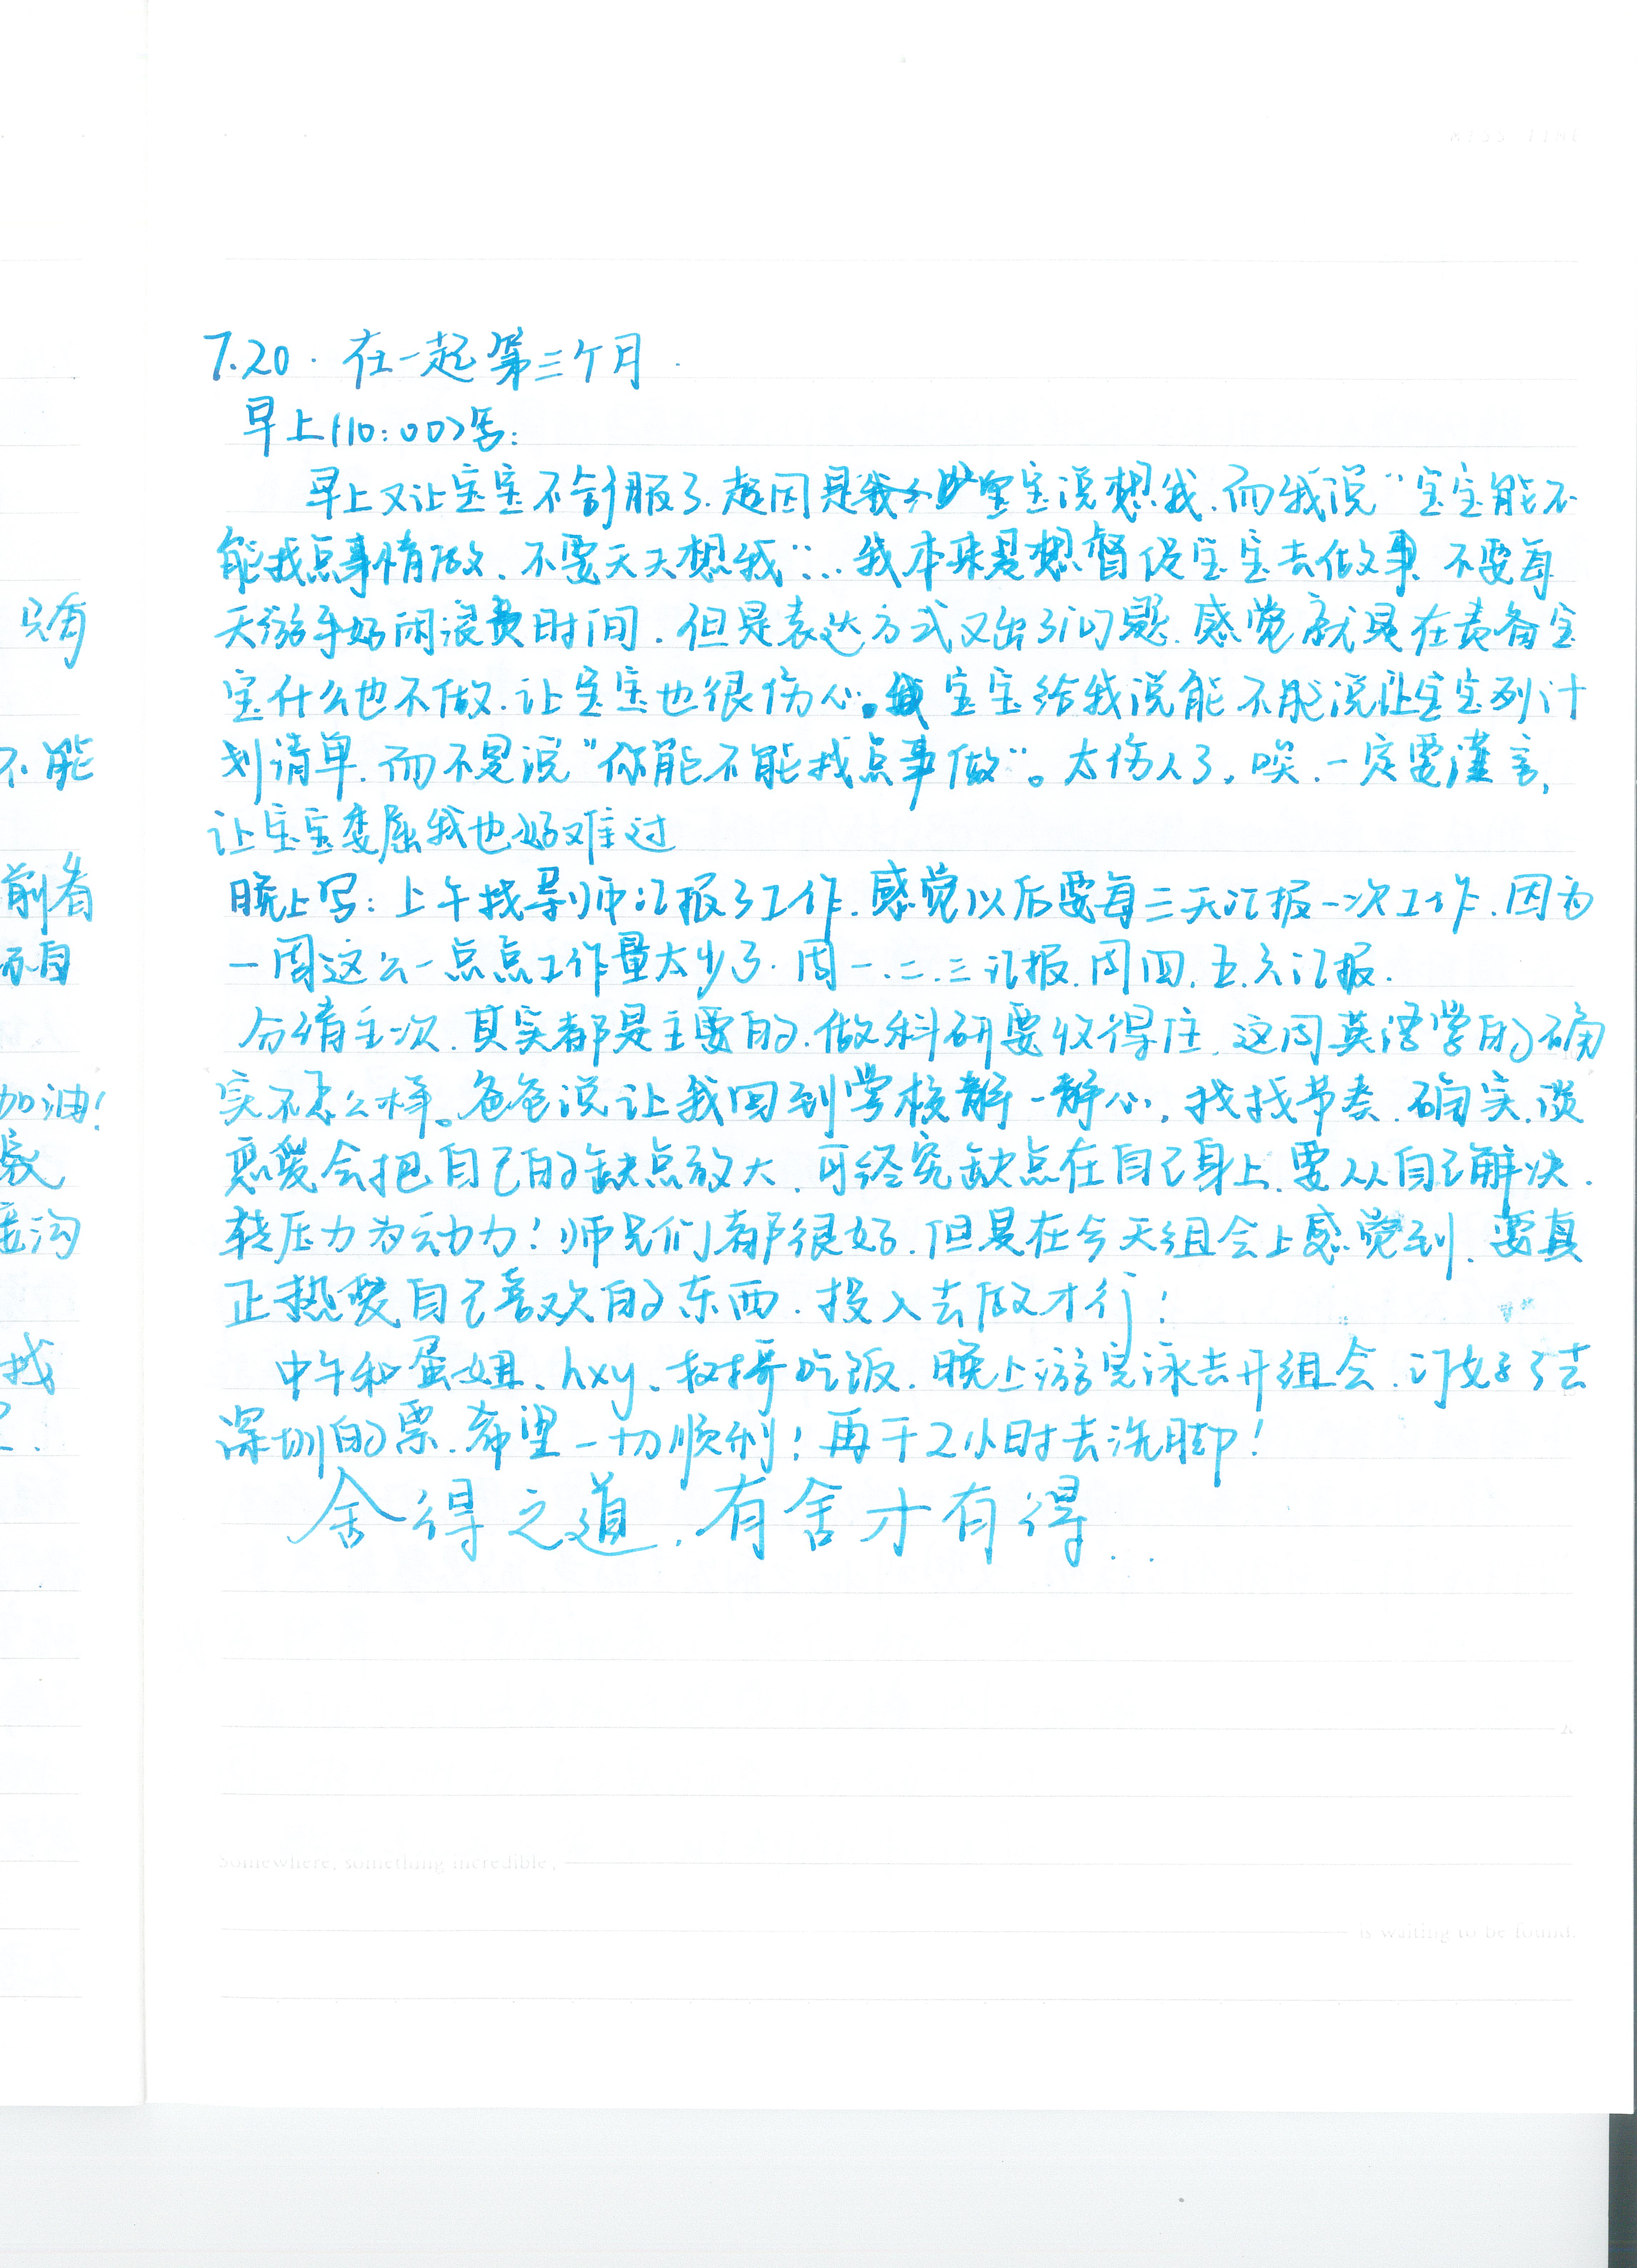 只有
不能
前看
而自
加油!
沟
找
7.20. 在一起第三个月.
早上(10:00)写:
早上又让宝宝不舒服了.起因是宝宝说想我.而我说"宝宝能不
能找点事情做、不要天天想我"...我本来是想督促宝宝去做事 不要每
天游手好闲浪费时间.但是表达方式又出了问题.感觉就是在责备宝
宝什么也不做.让宝宝也很伤心。宝宝给我说能不能说让宝宝列计
划清单.而不是说"你能不能找点事做"。太伤人了,唉.一定要谨言,
让宝宝委屈我也好难过
晚上写:上午找导师汇报了工作.感觉以后要每三天汇报一次工作.因为
一周这么一点点工作量太少了.周一.二.三汇报.周四.五.六汇报.
分清主次.其实都是主要的.做科研要收得住.这周英语学的确
实不怎么样。爸爸说让我回到学校静一静心,找找节奏.确实.谈
恋爱会把自己的缺点放大.可终究缺点在自己身上.要从自己解决.
转压力为动力!师兄们都很好.但是在今天组会上感觉到.要真
正热爱自己喜欢的东西.投入去做才行!
中午和蛋妞、hxy、权哥吃饭.晚上游完泳去开组会.订好了去
深圳的票.希望一切顺利!再干2小时去洗脚!
舍得之道,有舍才有得...
Somewhere, something incredible,
is waiting to be found.